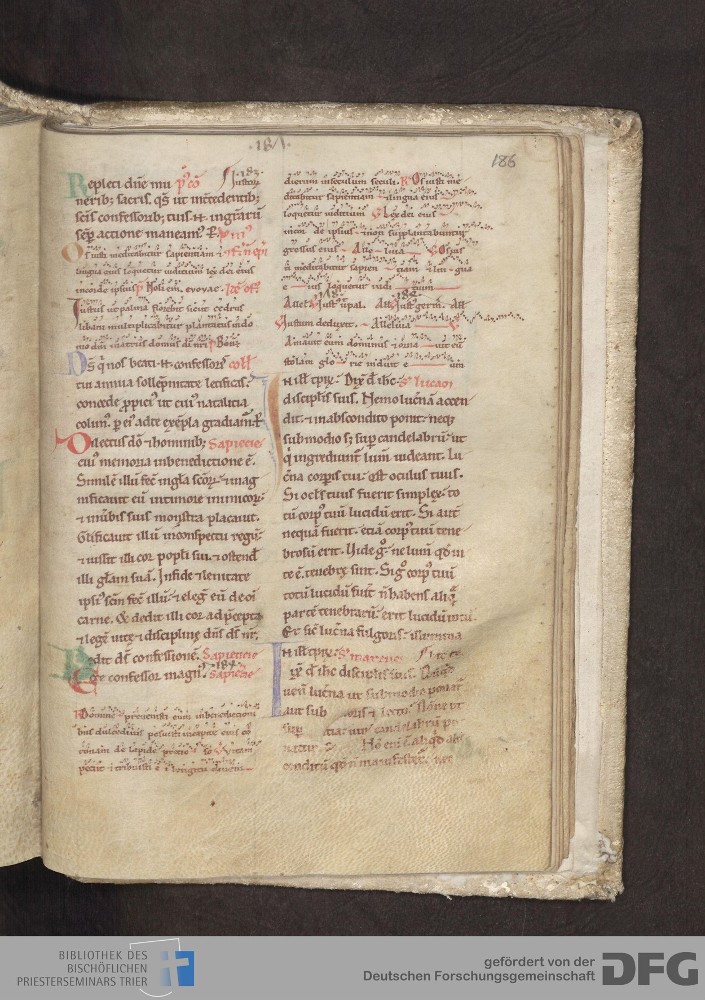 .181.
186
Repleti dn̄e mu p̄ co ·183· Iustor
neribꝫ sacris. qs̄ ut int̄cedentibꝫ
sc̄is confessoribꝫ tuis ·N· in gr̄arū
semp̄ actione maneam᷒.
Os iusti meditabitur sapientiam ⁊
lingua eius loquetur iudicium lex dei eius
in corde ipsius euovae.
Iustus ut palma florebit sicut cedrus
libani multiplicabitur plantatus in do
mo dn̄i in atriis domus dei nr̄i
Ds̄ q̇ nos beati ·N· confessoris coll̄
tui annua sollēpnitate letificas.
concede ꝓpici᷒ ut cui᷒ natalicia
colim᷒. ꝑ ei᷒ ad te exēpla gradiam᷒.
Dilectus dō ⁊ hominibꝫ Sapiencie
cui᷒ memoria in benedictione ē.
Similem illū fec̄ in gl̄a sc̄oꝝ. ⁊ mag
nificauit eū in timore inimicoꝝ.
⁊ in ūbis suis monstra placauit.
Glificauit illū in conspectu regū.
⁊ iussit illi cor popl̄i sui. ⁊ ostend̄
illi gl̄am suā. In fide ⁊ lenitate
ipsi᷒ sc̄m fec̄ illū. ⁊ eleḡ eū de oī
carne. Et dedit illi cor ad p̄cepta
⁊ legē uite ⁊ discipline dn̄s ds̄ nr̄.
Dedit ds̄ confessione. Sapiencie
Ecce confessor magn᷒. ·184· Sapiēcie
Domine preuenisti eum in benedictioni
bus dulcedinis posuisti in capite eius co
ronam de lapide precio so Vitam
peciit ⁊ tribuisti e i longitu dinem
dierum in seculum seculi. Os iusti me
ditabitur sapientiam ⁊ lingua eius
loquetur iudicium Lex dei eius
in cor de ipsius ⁊ non supplantabuntur
gressus eius Alle luia Os ius
ti meditabitur sapien ciam ⁊ lin gua
e ius loquetur iudi cium
Alleł Iust᷒ ut pal. Alł Iust᷒ germ̄. Alł
Iustum deduxit. Alleluia
Amauit eum dominus ⁊ orna uit eū
stolam glo rie induit e um
In ill̄ tp̄re. Dix̄ d̄ ih̄c S. lucam
discipl̄is suis. Nemo lucn̄ā accen
dit. ⁊ in abscondito ponit. neqꝫ
sub modio sꝫ sup̄ candelabrū ut
q̇ ingrediunt̄ lum̄ uideant. Lu
cn̄a corp̄is tui. est oculus tuus.
Si ocl̄s tuus fuerit simplex. to
tū corp᷒ tuū lucidū erit. Si aut̄
nequā fuerit. eciā corp᷒ tuū tene
brosū erit. Vide gͦ. ne lum̄ qd̄ in
te ē. tenebre sint. Si gͦ corp᷒ tuū
totū lucidū fuit̄ n̄ habens aliq̇̄
parte tenebrarū. erit lucidū totū.
Et sic̄ lucn̄a fulgoris. illumina
In ill̄ tp̄re. S. marcum
Dix̄ d̄ ih̄c discipl̄is suis. Nūq̇d
uen̄ lucn̄a ut sub modio ponat̄
aut sub lecto. Nōne ut
sup̄ candelabrū po
natur. Nō eni ē aliq̇d abs
conditū qd̄ n̄ manifestet̄. nec
BIBLIOTHEK DES
BISCHÖFLICHEN
PRIESTERSEMINARS TRIER
gefördert von der
Deutschen Forschungsgemeinschaft
DFG